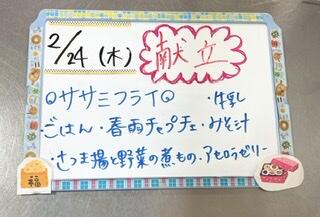 2/24(木) 献立
◎ササミフライ◎ ・牛乳
ごはん・春雨チャプチェ・みそ汁
・さつま揚と野菜の煮もの・アセロラゼリー
福